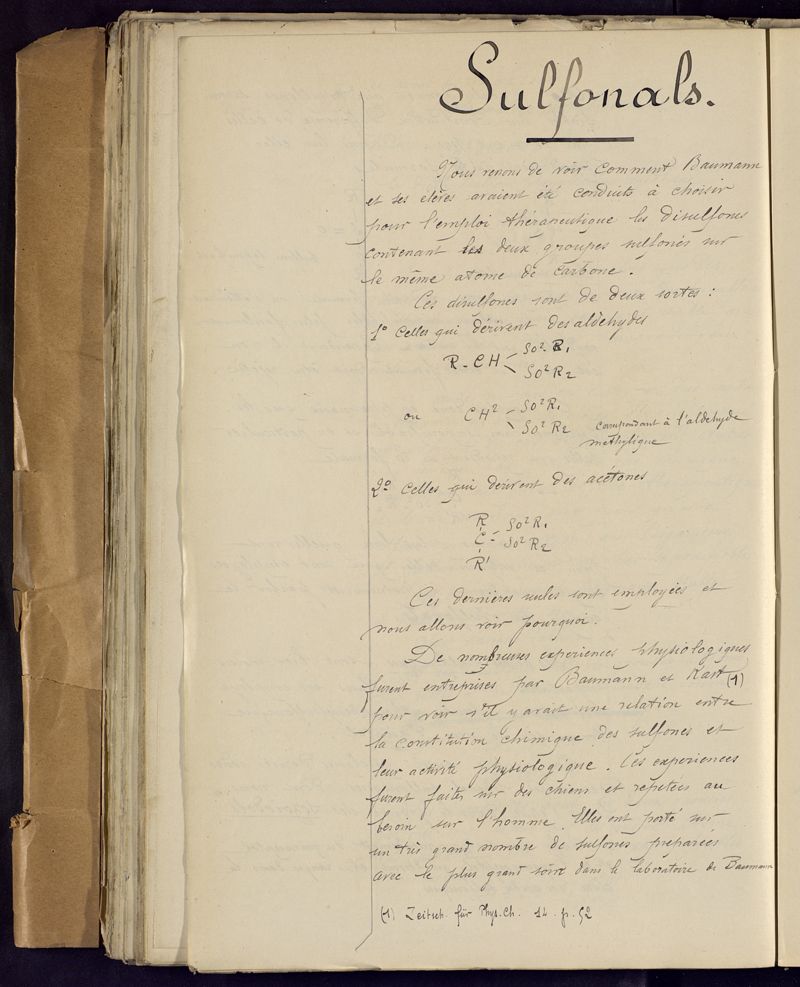 Sulfonals.
Nous venons de voir comment Baumann
et ses élèves avaient été conduits à choisir
pour l'emploi thérapeutique les disulfones
contenant les deux groupes sulfonés sur
le même atome de carbone.
Ces disulfones sont de deux sortes :
1º Celles qui dérivent des aldehydes
R - CH < SO² R₁
SO² R₂
ou CH² < SO² R₁
SO² R₂ correspondant à l'aldehyde
methylique
2º Celles qui dérivent des acétones
R
C = SO² R₁
SO² R₂
R'
Ces dernières seules sont employées et
nous allons voir pourquoi.
De nombreuses experiences physiologiques
furent entreprises par Baumann et Kast (1)
pour voir s'il y avait une relation entre
la constitution chimique des sulfones et
leur activité physiologique. Ces experiences
furent faites sur des chiens et repetées au
besoin sur l'homme. Elles ont porté sur
un très grand nombre de sulfones preparées
avec le plus grand soin dans le laboratoire de Baumann
(1) Zeitsch. für Phys. Ch. 14. p. 52